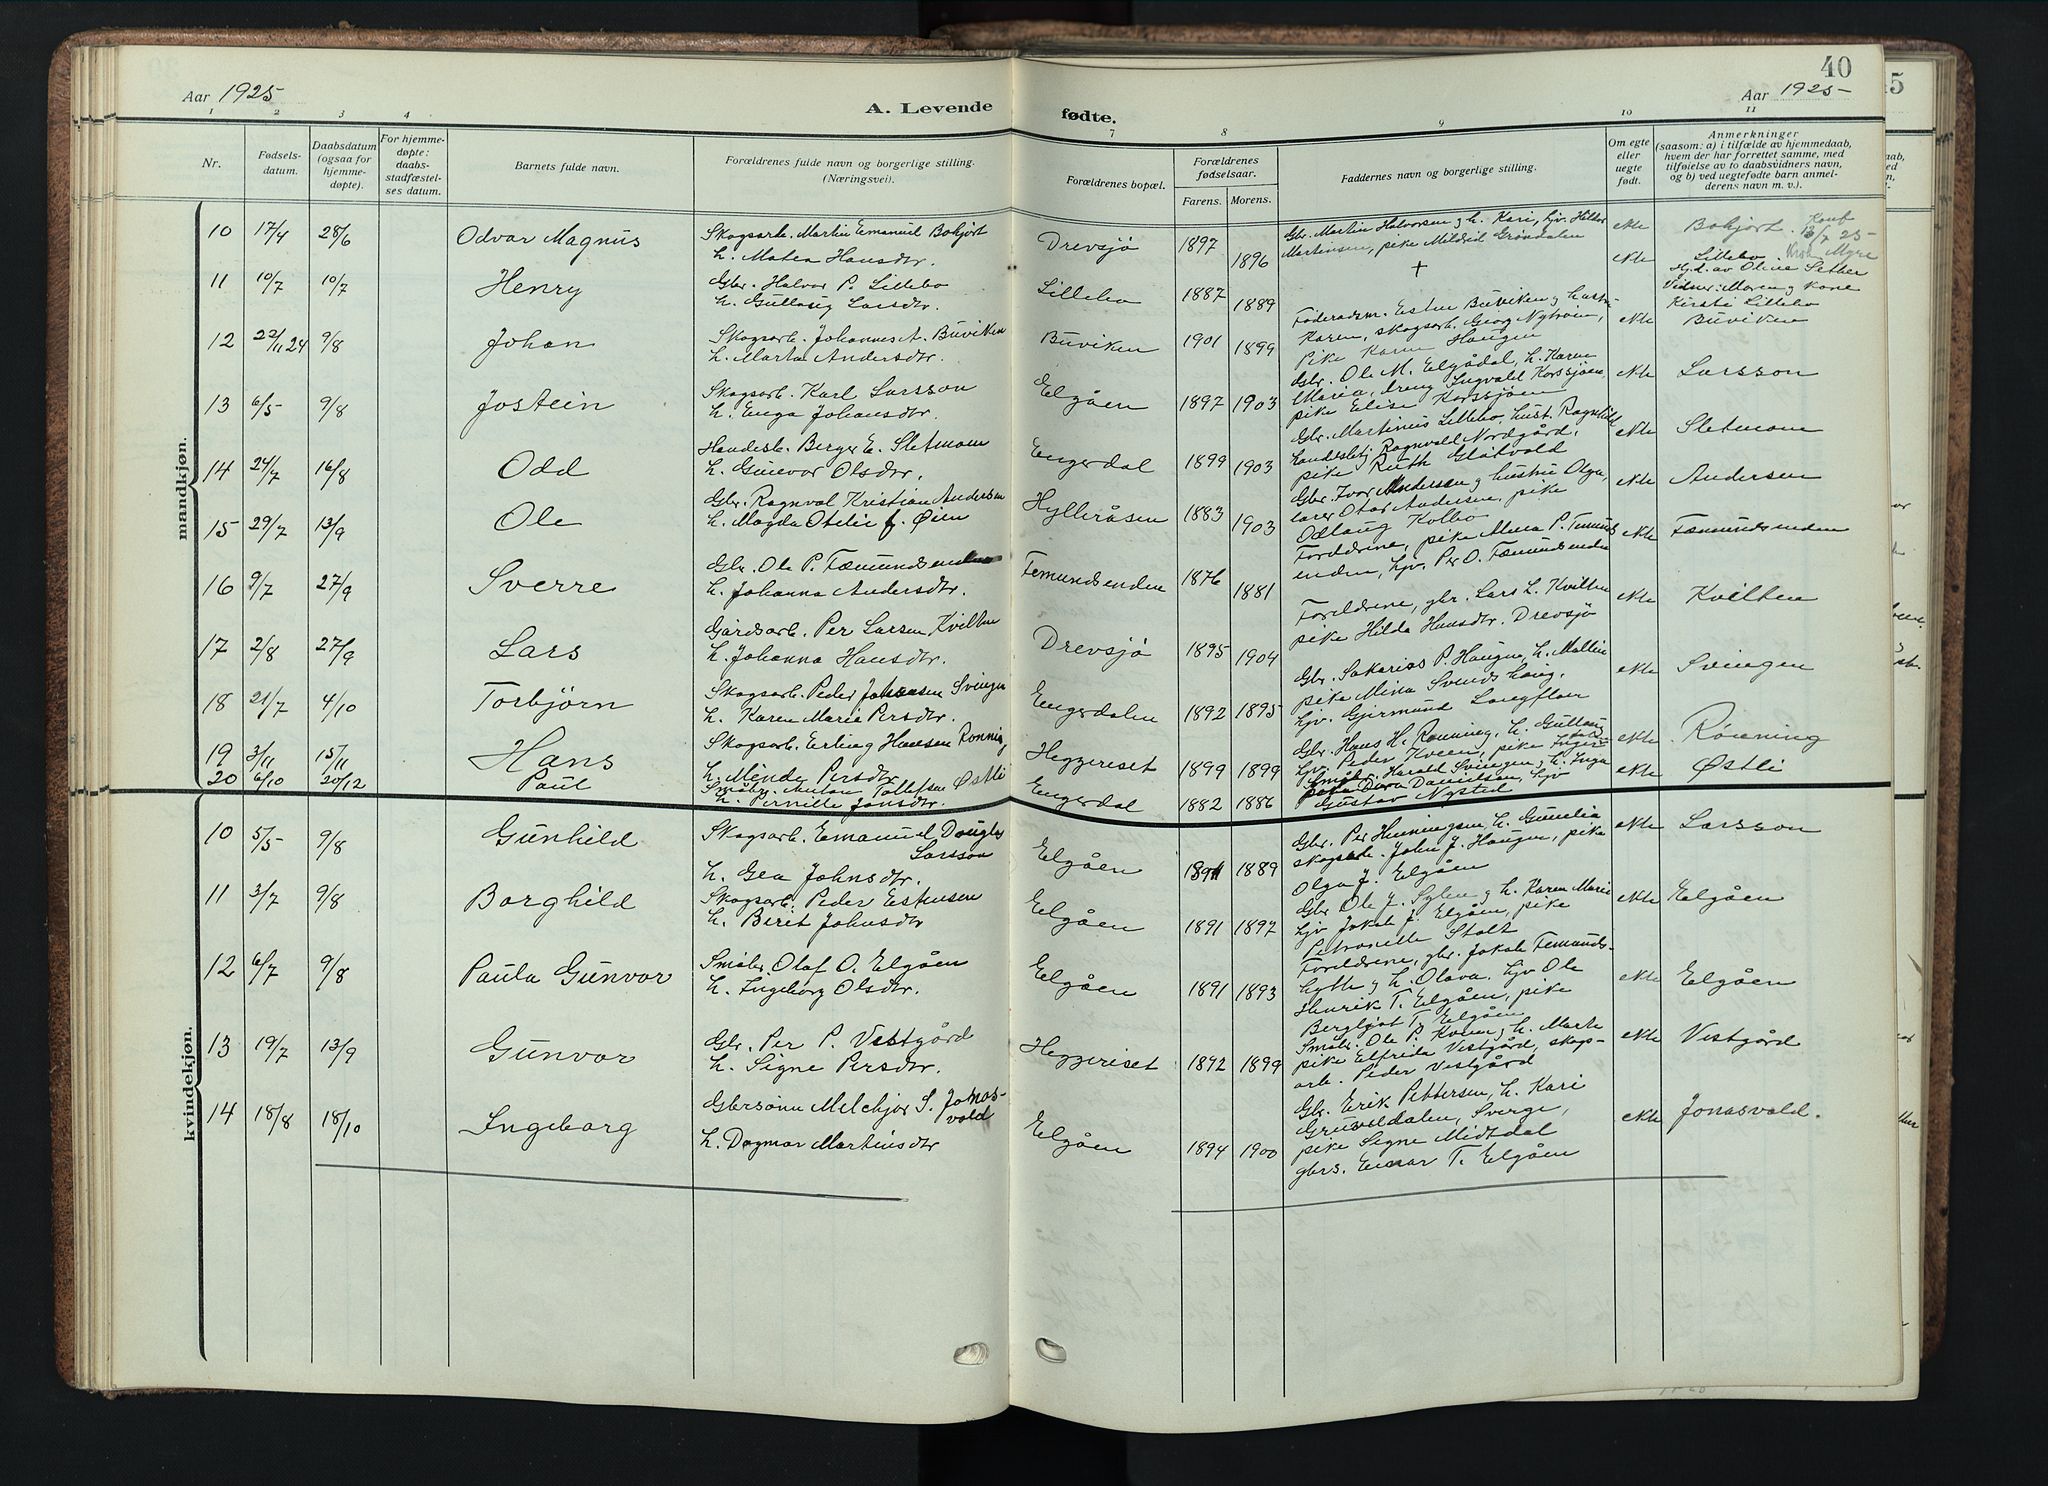 40
15
Aar 1925
A. Levende
fødte.
Aar 1925-
1 2 3 4
7 8 9 10 11
Nr.
Fødsels-
datum.
Daabsdatum
(ogsaa for
hjemme-
døpte).
For hjemme-
døpte:
daabs-
stadfæstel-
ses datum.
Barnets fulde navn.
Forældrenes fulde navn og borgerlige stilling.
(Næringsvei).
Forældrenes bopæl.
Forældrenes
fødselsaar.
Farens. Morens.
Faddernes navn og borgerlige stilling.
Om egte
eller
uegte
født.
Anmerkninger
(saasom: a) i tilfælde av hjemmedaab,
hvem der har forrettet samme, med
tilføielse av to daabsvidners navn,
og b) ved uegtefødte barn anmel-
derens navn m. v.).
mandkjøn.
10 17/4 28/6 Odvar Magnus
Skogsarb. Martin Emanuel Bohjort
h. Matea Hansdtr.
Drevsjø 1897 1896
Gbr. Martin Halvorsen og h. Kari, hjv. Hilda
Martinsen, pike Mildrid Grøndalen
ekte Bohjort. Konf
13/7 25-
11 10/7 10/7 Henry
Gbr. Halvor P. Lillebo
h. Gullaug Larsdtr.
Lillebo 1887 1889
+
ekte Lillebo.
Hj.d. av Oline Sether
Vidner: Moren og Kone
Kirsti Lillebo
12 22/11 24 9/8 Johan
Skogsarb. Johannes A. Buviken
h. Marta Andersdtr.
Buviken 1901 1899
Føderaadsm. Esten Buviken og hustru
Karen, skogsarb. Georg Nytrøen,
Pike Karen Haugen
ekte Buviken
13 6/5- 9/8 Jostein
Skogsarb. Karl Larsson
h. Enga Johansdtr.
Elgåen 1897 1903
Gbr. Ole M. Elgådal, h. Karen
Maria, dreng Ingvald Korssjøen,
pike Elise Korssjøen
ekte Larsson
14 24/7 16/8 Odd
Handelsb. Berger E. Sletmoen
h. Gunvor Olsdtr.
Engerdal 1899 1903
Gbr. Martinus Lillebo, hust. Ragnhild
handelsbtj. Ragnvald Nordgård,
pike Ruth Gløtvold
ekte Sletmoen
15 29/7 13/9 Ole
Gbr. Ragnval Kristian Andersen
h. Magda Otelie f. Øien
Hylleråsen 1883 1903
Gbr. Ivar Andersen og hustru Olga,
lærer Otar Andersen, pike
Odlaug Kolbo
ekte Andersen
16 9/7 27/9 Sverre
Gbr. Ole P. Fæmundsenden
h. Johanna Andersdtr.
Femundsenden 1876 1881
Foreldrene, pike Mina P. Femunds
enden, hjv. Per O. Fæmundsenden
ekte Fæmundsenden
17 2/8 27/9 Lars
Gårdsarb. Per Larsen Kvilten
h. Johanna Hansdtr.
Drevsjø 1895 1904
Foreldrene, gbr. Lars L. Kvilten
pike Hilda Hansdtr. Drevsjø
ekte Kvilten
18 21/7 4/10 Torbjørn
Skogsarb. Peder Johansen Svingen
h. Karen Marie Persdtr.
Engerdalen 1892 1895
Gbr. Sakarias P. Haugen, h. Mallin
pike Mina Svendshaug,
hjv. Gjermund Langfloen
ekte Svingen
19 3/11 15/11 Hans
Skogsarb. Erling Hansen Rønning
h. Minda Persdtr.
Heggeriset 1899 1899
Gbr. Hans H. Rønning, h. Gullaug
hjv. Peder Kveen, pike Inger
ekte Rønning
20 6/10 20/12 Paul
Småbr. Anton Tollefsen Østli
h. Pernille Jonsdtr.
Engerdal 1882 1886
Småbr. Harald Svingen, h. Inga
pike Dora Danielsen, hjv
Gustav Nysted
ekte Østli
kvindekjøn.
10 5/5- 9/8 Gunhild
Skogsarb. Emanuel Douglas
Larsson
h. Gea Johnsdtr.
Elgåen 1891 1889
Gbr. Per Henningsen, h. Gunelia
skogsarb. John J. Haugen, pike
Olga J. Elgåen
ekte Larsson
11 3/7 9/8 Borghild
Skogsarb. Peder Estensen
h. Birit Johnsdtr
Elgåen 1891 1897
Gbr. Ole J. Sylen og h. Karen Marie
hjv Jakob J. Elgåen, pike
Petronelle Stolt
ekte Elgåen
12 6/7 9/8 Paula Gunvor
Småbr. Olaf O. Elgåen
h. Ingeborg Olsdtr.
Elgåen 1891 1893
Foreldrene, gbr. Jakob Femunds-
hytte og h. Olava. hjv Ole
Henrik T. Elgåen, pike
Bergljot T. Elgåen
ekte Elgåen
13 19/7 13/9 Gunvor
Gbr. Per P. Vestgård
h. Signe Persdtr.
Heggeriset 1892 1899
Småbr. Ole P. Kveen og h. Marte
pike Elfrida Vestgård, skogs-
arb. Peder Vestgård
ekte Vestgård
14 18/8 18/10 Ingeborg
Gbrsønn Melchjor S. Jonas-
vold
h. Dagmar Martinsdtr
Elgåen 1894 1900
Gbr. Erik Pettersen, h. Kari
Gruveldalen, Sverge,
pike Signe Midtdal
gbrs. Einar T. Elgåen
ekte Jonasvold.